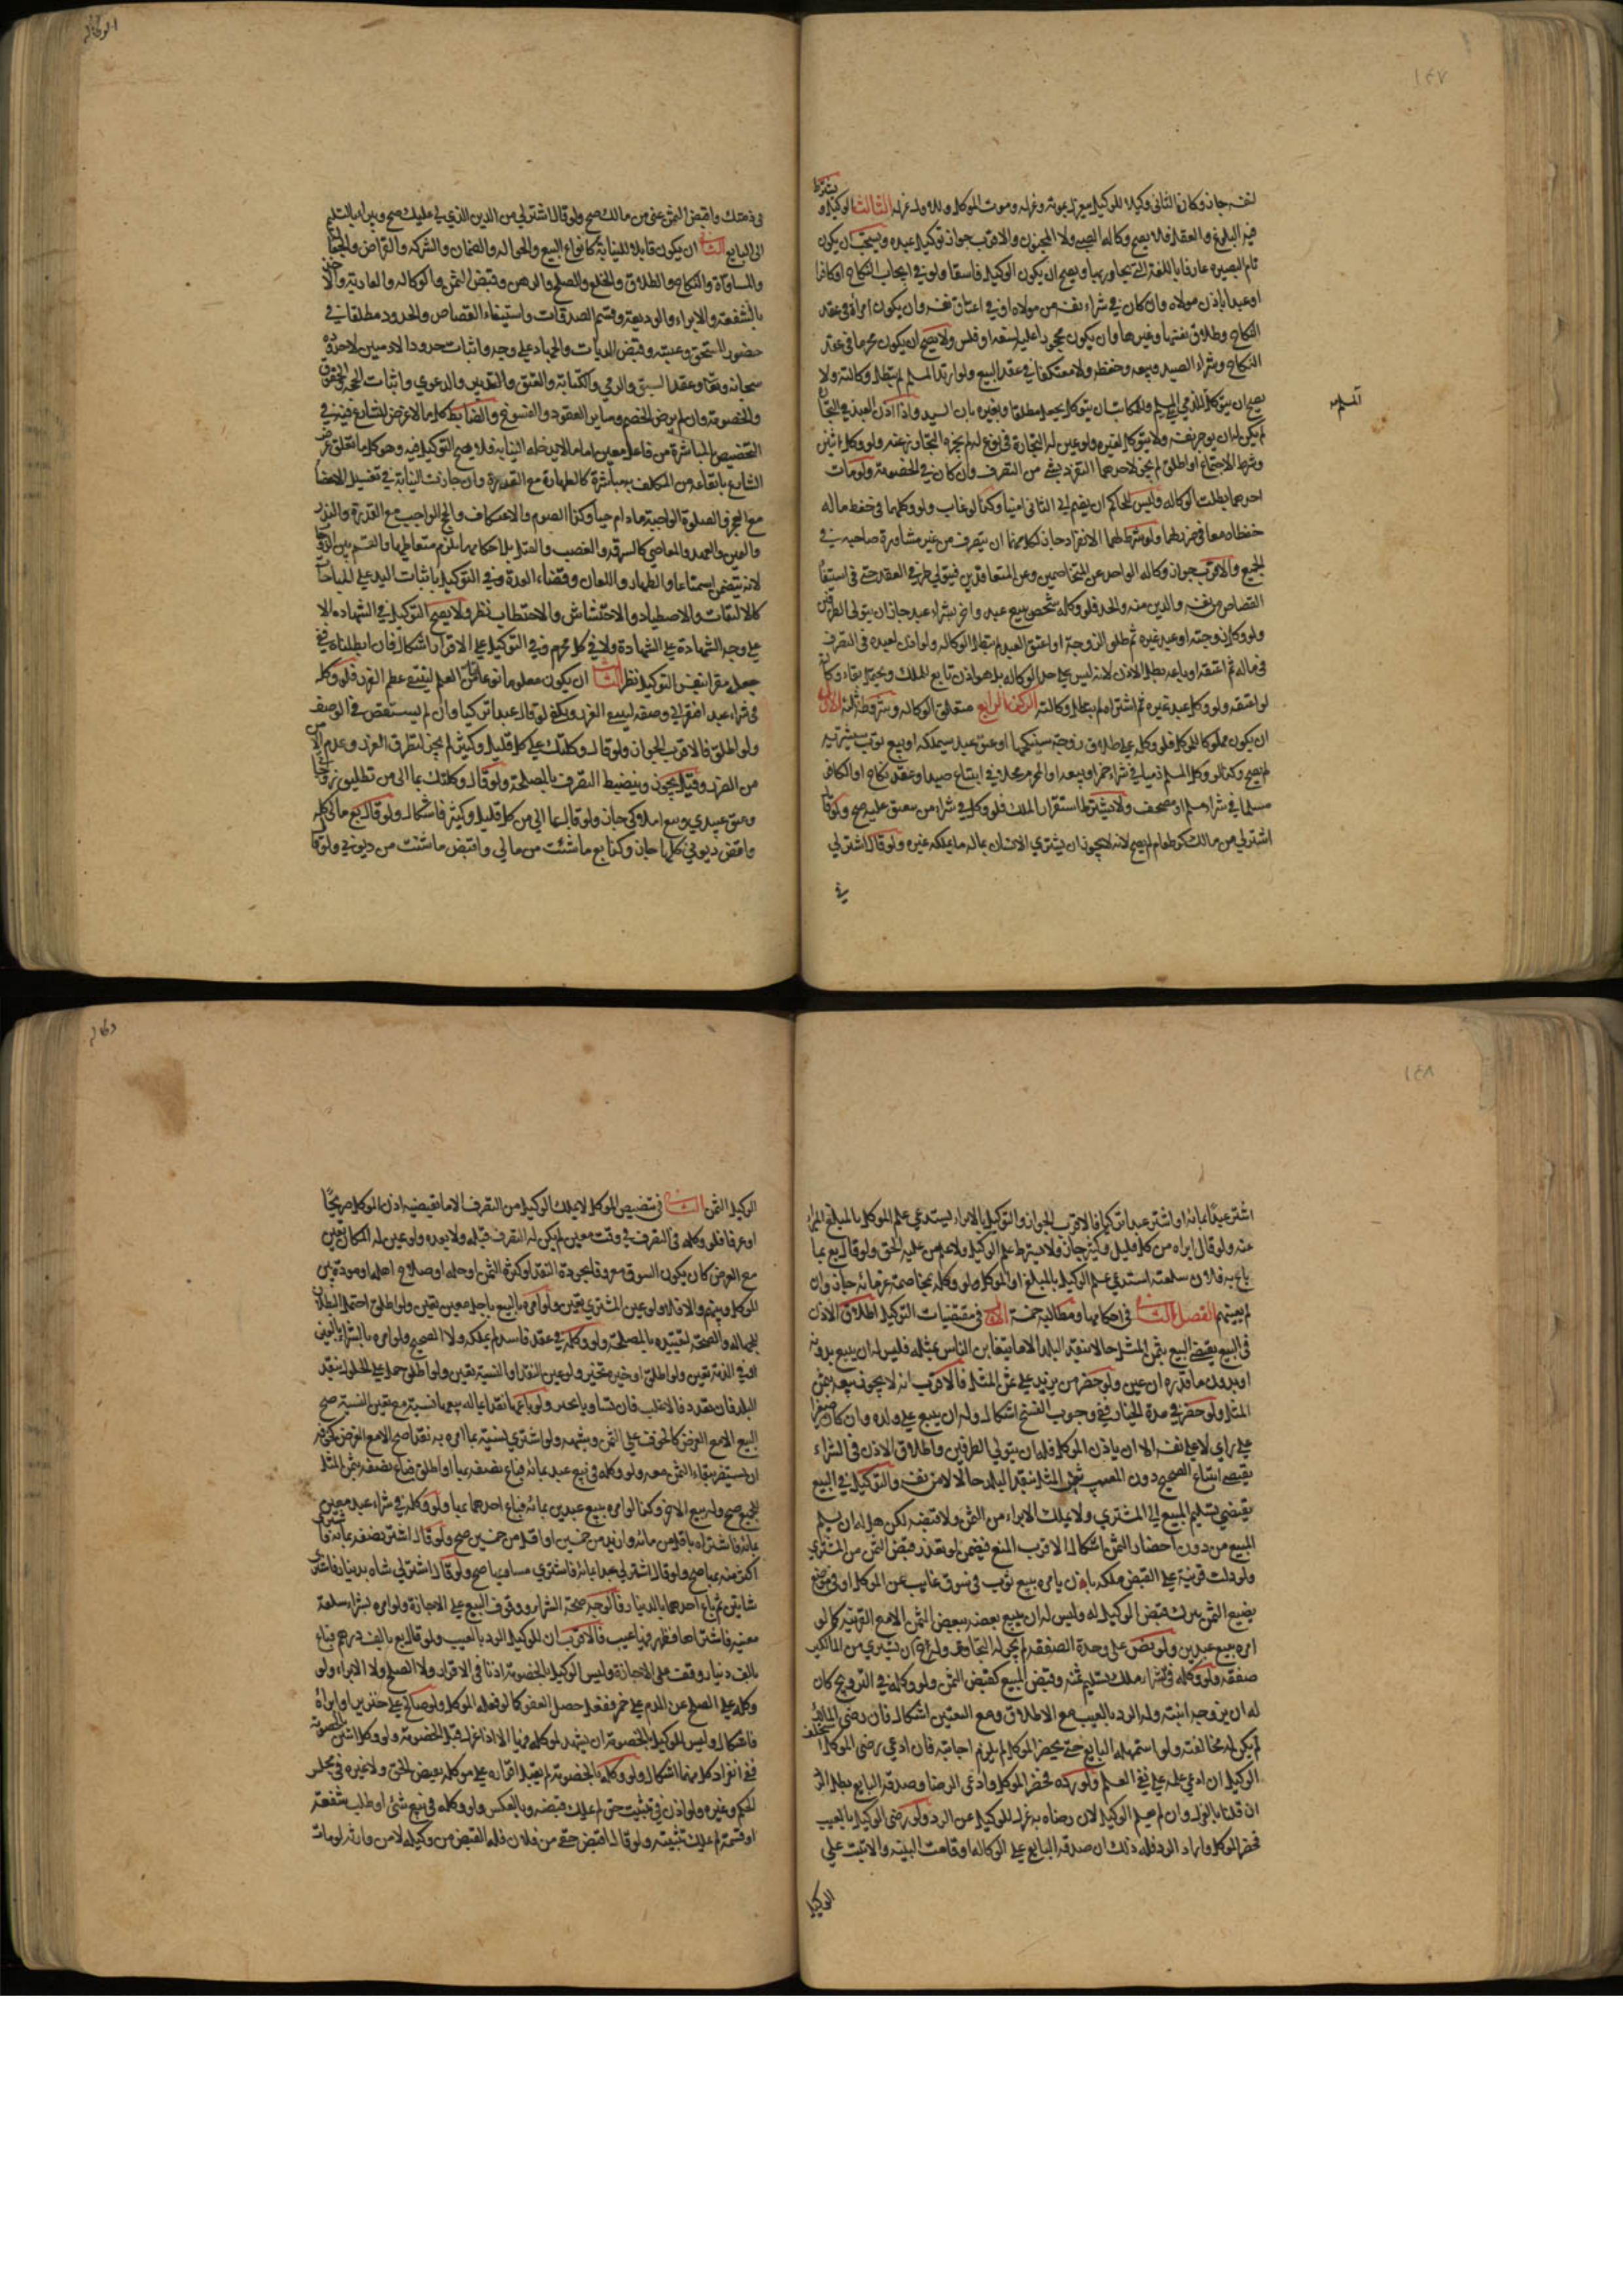 ١٤٧
لنفسه جاز وكان الثاني وكيلا للموكل ينعزل بموته وعزله وموت الموكل وله عزله الثالث الوكيل و
يشترط
فيه البلوغ والعقل فلا يصح وكالة الصبي ولا المجنون والاقرب جواز توكيل عبده ويستحب ان يكون
تام البصيرة عارفا باللغة التي يحاور بها ويصح ان يكون الوكيل فاسقا ولو في ايجاب النكاح او كافرا
او عبدا باذن مولاه وان كان في شراء نفسه من مولاه او في اعتاق نفسه وان يكون امراة في عقد
النكاح وطلاق نفسها وغيرها وان يكون محجورا عليه لسفه او فلس ولا يصح ان يكون محرما في عقد
النكاح وشراء الصيد وبيعه وحفظه ولا معتكفا في عقد البيع ولو ارتد المسلم لم يبطل وكالته ولا
يصح ان يتوكل الذمي على المسلم وللمكاتب ان يتوكل بجعل مطلقا وبغيره باذن السيد واذا اذن لعبده في التجارة
المسلم
لم يكن له ان يوجر نفسه ولا يتوكل لغيره ولو عين له التجارة في نوع لم يجز له التجاوز عنه ولو وكل اثنين
وشرط الاجتماع او اطلق لم يجز لاحدهما التفرد بشي من التصرف وان كان في الخصومة ولو مات
احدهما بطلت الوكالة وليس للحاكم ان يضم الى الثاني امينا وكذا لو غاب ولو وكلهما في حفظ ماله
حفظاه معا في حرز لهما ولو شرط لهما الانفراد جاز لكل منهما ان يتصرف من غير مشاورة صاحبه في
الجميع والاقرب جواز وكالة الواحد عن المتخاصمين وعن المتعاقدين فيتولى طرفي العقد حتى في استيفاء
القصاص من نفسه والدين منه والحد فلو وكله شخص ببيع عبد واخر بشراء عبد جاز ان يتولى الطرفين
ولو وكل زوجته او عبد غيره ثم طلق الزوجة او اعتق العبد لم تبطل الوكالة ولو اذن لعبده في التصرف
في ماله ثم اعتقه او باعه بطل الاذن لانه ليس على حد الوكالة بل هو اذن تابع للملك ويحتمل بقاء وكالته
لو اعتقه ولو وكل عبد غيره ثم اشتراه لم يبطل وكالته الركن الرابع متعلق الوكالة وشروطه ثلثة الاول
ان يكون مملوكا للموكل فلو وكله على طلاق زوجة سينكحها او عتق عبد سيملكه او بيع ثوب سيشتريه
لم يصح وكذا لو وكل المسلم ذميا في شراء خمر او بيعه او المحرم محلا في ابتياع صيد او عقد نكاح او الكافر
مسلما في شراء مسلم او مصحف ولا يشترط استقرار الملك فلو وكله في شراء من ينعتق عليه صح ولو قال
اشتر لي من مالك كر طعام لم يصح لانه لا يجوز ان يشتري الانسان بماله ما يملكه غيره ولو قال اشتر لي
في
الوكالة
في ذمتك واقبض الثمن عني من مالك صح ولو قال اشتر لي من الدين الذي لي عليك صح ويبرا بالتسليم
الى البايع الثاني ان يكون قابلا للنيابة كانواع البيع والحوالة والضمان والشركة والقراض والجعالة
والمساقاة والنكاح والطلاق والخلع والصلح والرهن وقبض الثمن والوكالة والعارية والاخذ
بالشفعة والابراء والوديعة وقسم الصدقات واستيفاء القصاص والحدود مطلقا في
حضور المستحق وغيبته وقبض الديات والجهاد على وجه واثبات حدود الادميين لا حدوده
سبحانه وتعالى وعقد السبق والرمي والكتابة والعتق والتدبير والدعوى واثبات الحجة والحقوق
والخصومة وان لم يرض الخصم وساير العقود والفسوخ والضابط كل ما لا غرض للشارع فيه في
التخصيص بالمباشرة من فاعل معين اما ما لا يدخله النيابة فلا يصح التوكيل فيه وهو كل ما تعلق غرض
الشارع بايقاعه من المكلف به مباشرة كالطهارة مع القدرة وان جازت النيابة في تغسيل الاعضاء
مع العجز والصلوة الواجبة ما دام حيا وكذا الصوم والاعتكاف والحج الواجب مع القدرة والنذر
واليمين والعهد والمعاصي كالسرقة والغصب والقتل بل احكامها يلزم متعاطيها والقسم بين الزوجات
لانه يتضمن استمتاعا والظهار واللعان وقضاء العدة وفي التوكيل باثبات اليد على المباحات
كالالتقاط والاصطياد والاحتشاش والاحتطاب نظر ولا يصح التوكيل في الشهادة الا
على وجه الشهادة على الشهادة ولا في كل محرم وفي التوكيل على الاقرار اشكال فان ابطلناه ففي
جعله مقرا بنفس التوكيل نظر الثالث ان يكون معلوما نوعا من العلم لينتفي عظم الغرر فلو وكله
في شراء عبد افتقر الى وصفه لينتفي الغرر ويكفي لو قال عبدا تركيا وان لم يستقص في الوصف
ولو اطلق فالاقرب الجواز ولو قال وكلتك على كل قليل وكثير لم يجز لتطرق الغرر وعدم الامن
من الضرر وقيل يجوز وينضبط التصرف بالمصلحة ولو قال وكلتك بما الي من تطليق زوجاتي
وعتق عبيدي وبيع املاكي جاز ولو قال بما الي من كل قليل وكثير فاشكال ولو قال بع مالي كله
واقبض ديوني كلها جاز وكذا بع ما شئت من مالي واقبض ما شئت من ديوني ولو قال
١٤٨
اشتر عبدا بمائة او اشتر عبدا تركيا فالاقرب الجواز والتوكيل بالابراء يستدعي علم الموكل بالمبلغ المبرا
عنه ولو قال ابراه من كل قليل وكثير جاز ولا يشترط علم الوكيل ولا علم من عليه الحق ولو قال بع بما
باع به فلان سلعته استدعى علم الوكيل بالمبلغ او الموكل ولو وكله بمخاصمة غرمائه جاز وان
لم يعينهم الفصل الثاني في احكامها ومطالبه خمسة الاول في مقتضيات التوكيل اطلاق الاذن
في البيع يقتضي البيع بثمن المثل حالا بنقد البلد الا ما يتغابن الناس بمثله فليس له ان يبيع بدونه
او بدون ما قدره ان عين ولو حضر من يزيد على ثمن المثل فالاقرب انه لا يجوز بيعه بثمن
المثل ولو حضر في مدة الخيار ففي وجوب الفسخ اشكال وله ان يبيع على ولده وان كان صغيرا
على راي لا على نفسه الا ان ياذن الموكل فله ان يتولى الطرفين واطلاق الاذن في الشراء
يقتضي ابتياع الصحيح دون المعيب بثمن المثل بنقد البلد حالا لا من نفسه والتوكيل في البيع
يقتضي تسليم المبيع الى المشتري ولا يملك الابراء من الثمن ولا قبضه لكن هل له ان يسلم
المبيع من دون احضار الثمن اشكال الاقرب المنع فيضمن لو تعذر قبض الثمن من المشتري
ولو دلت قرينة على القبض ملكه بان يامره ببيع ثوب في سوق غايب عن الموكل او في موضع
يضيع الثمن بترك قبض الوكيل له وليس له ان يبيع بعضه ببعض الثمن الا مع القرينة كما لو
امره ببيع عبدين ولو نص على وحدة الصفقة لم يجز له التجاوز وله ان يشتري من المالكين
صفقة ولو وكله في شراء ملك تسليم ثمنه وقبض المبيع كقبض الثمن ولو وكله في التزويج كان
له ان يزوجه ابنته وله الرد بالعيب مع الاطلاق ومع التعيين اشكال فان رضي المالك
لم يكن له مخالفته ولو استمهله البايع حتى يحضر الموكل لم يلزم اجابته فان ادعى رضى الموكل استحلف
الوكيل ان ادعى علمه على نفي العلم فلو رده فحضر الموكل وادعى الرضا وصدقه البايع بطل الرد
ان قلنا بالعزل وان لم يعلم الوكيل لان رضاه به عزل للوكيل عن الرد ولو رضي الوكيل بالعيب
فحضر الموكل واراد الرد فله ذلك ان صدقه البايع على الوكالة او قامت البينة والا ثبت على
الوكيل
وكالة
الوكيل الثمن الثاني في تنصيص الموكل لا يملك الوكيل من التصرف الا ما يقتضيه اذن الموكل صريحا
او عرفا فلو وكله في التصرف في وقت معين لم يكن له التصرف قبله ولا بعده ولو عين له المكان تعين
مع الغرض كان يكون السوق معروفا بجودة النقد او كثرة الثمن او حله او صلاح اهله او مودة بين
الموكل وبينهم والا فلا ولو عين المشتري تعين ولو امره بالبيع باجل معين تعين ولو اطلق احتمل البطلان
للجهالة والصحة لتقييده بالمصلحة ولو وكله في عقد فاسد لم يملكه ولا الصحيح ولو امره بالشراء بالعين
او في الذمة تعين ولو اطلق او خيره تخير ولو عين النقد او النسية تعين ولو اطلق حمل على الحلول بنقد
البلد فان تعدد فالاغلب فان تساويا تخير ولو باع نقدا ما له بيعه نسية مع تعين النسية صح
البيع الا مع الغرض كالخوف على الثمن وشبهه ولو اشترى نسية بما امره به نقدا صح الا مع الغرض كخوف
ان يستضر ببقاء الثمن معه ولو وكله في بيع عبد بمائة فباع نصفه بها او اطلق فباع نصفه بثمن المثل
للجميع صح وله بيع الاخر وكذا لو امره ببيع عبدين بمائة فباع احدهما بها ولو وكله في شراء عبد معين
بمائة فاشتراه باقل من مائة وازيد من خمسين او اقل من خمسين صح ولو قال اشتر نصفه بمائة فاشترى
اكثر منه بها صح ولو قال اشتر لي عبدا بمائة فاشترى مساويها صح ولو قال اشتر لي شاة بدينار فاشترى
شاتين ثم باع احدهما بالدينار فالوجه صحة الشراء ووقوف البيع على الاجازة ولو امره بشراء سلعة
معينة فاشتراها فظهر فيها عيب فالاقرب ان للوكيل الرد بالعيب ولو قال بع بالف درهم فباع
بالف دينار وقف على الاجازة وليس الوكيل بالخصومة اذنا في الاقرار ولا الصلح ولا الابراء ولو
وكله على الصلح عن الدم على خمر ففعل حصل العفو كما لو فعله الموكل ولو صالح على خنزير او ابراه
فاشكال وليس للوكيل بالخصومة ان يشهد لموكله فيها الا اذا عزل قبل الخصومة ولو وكل اثنين بالخصومة
ففي انفراد كل منهما اشكال ولو وكله بالخصومة لم يقبل اقراره على موكله بقبض الحق ولا غيره في مجلس
الحكم وغيره ولو اذن في تثبيت حق لم يملك قبضه وبالعكس ولو وكله في بيع شئ او طلب شفعة
او قسمة لم يملك تثبيته ولو قال اقبض حقي من فلان فله القبض من وكيله لا من وارثه لو مات